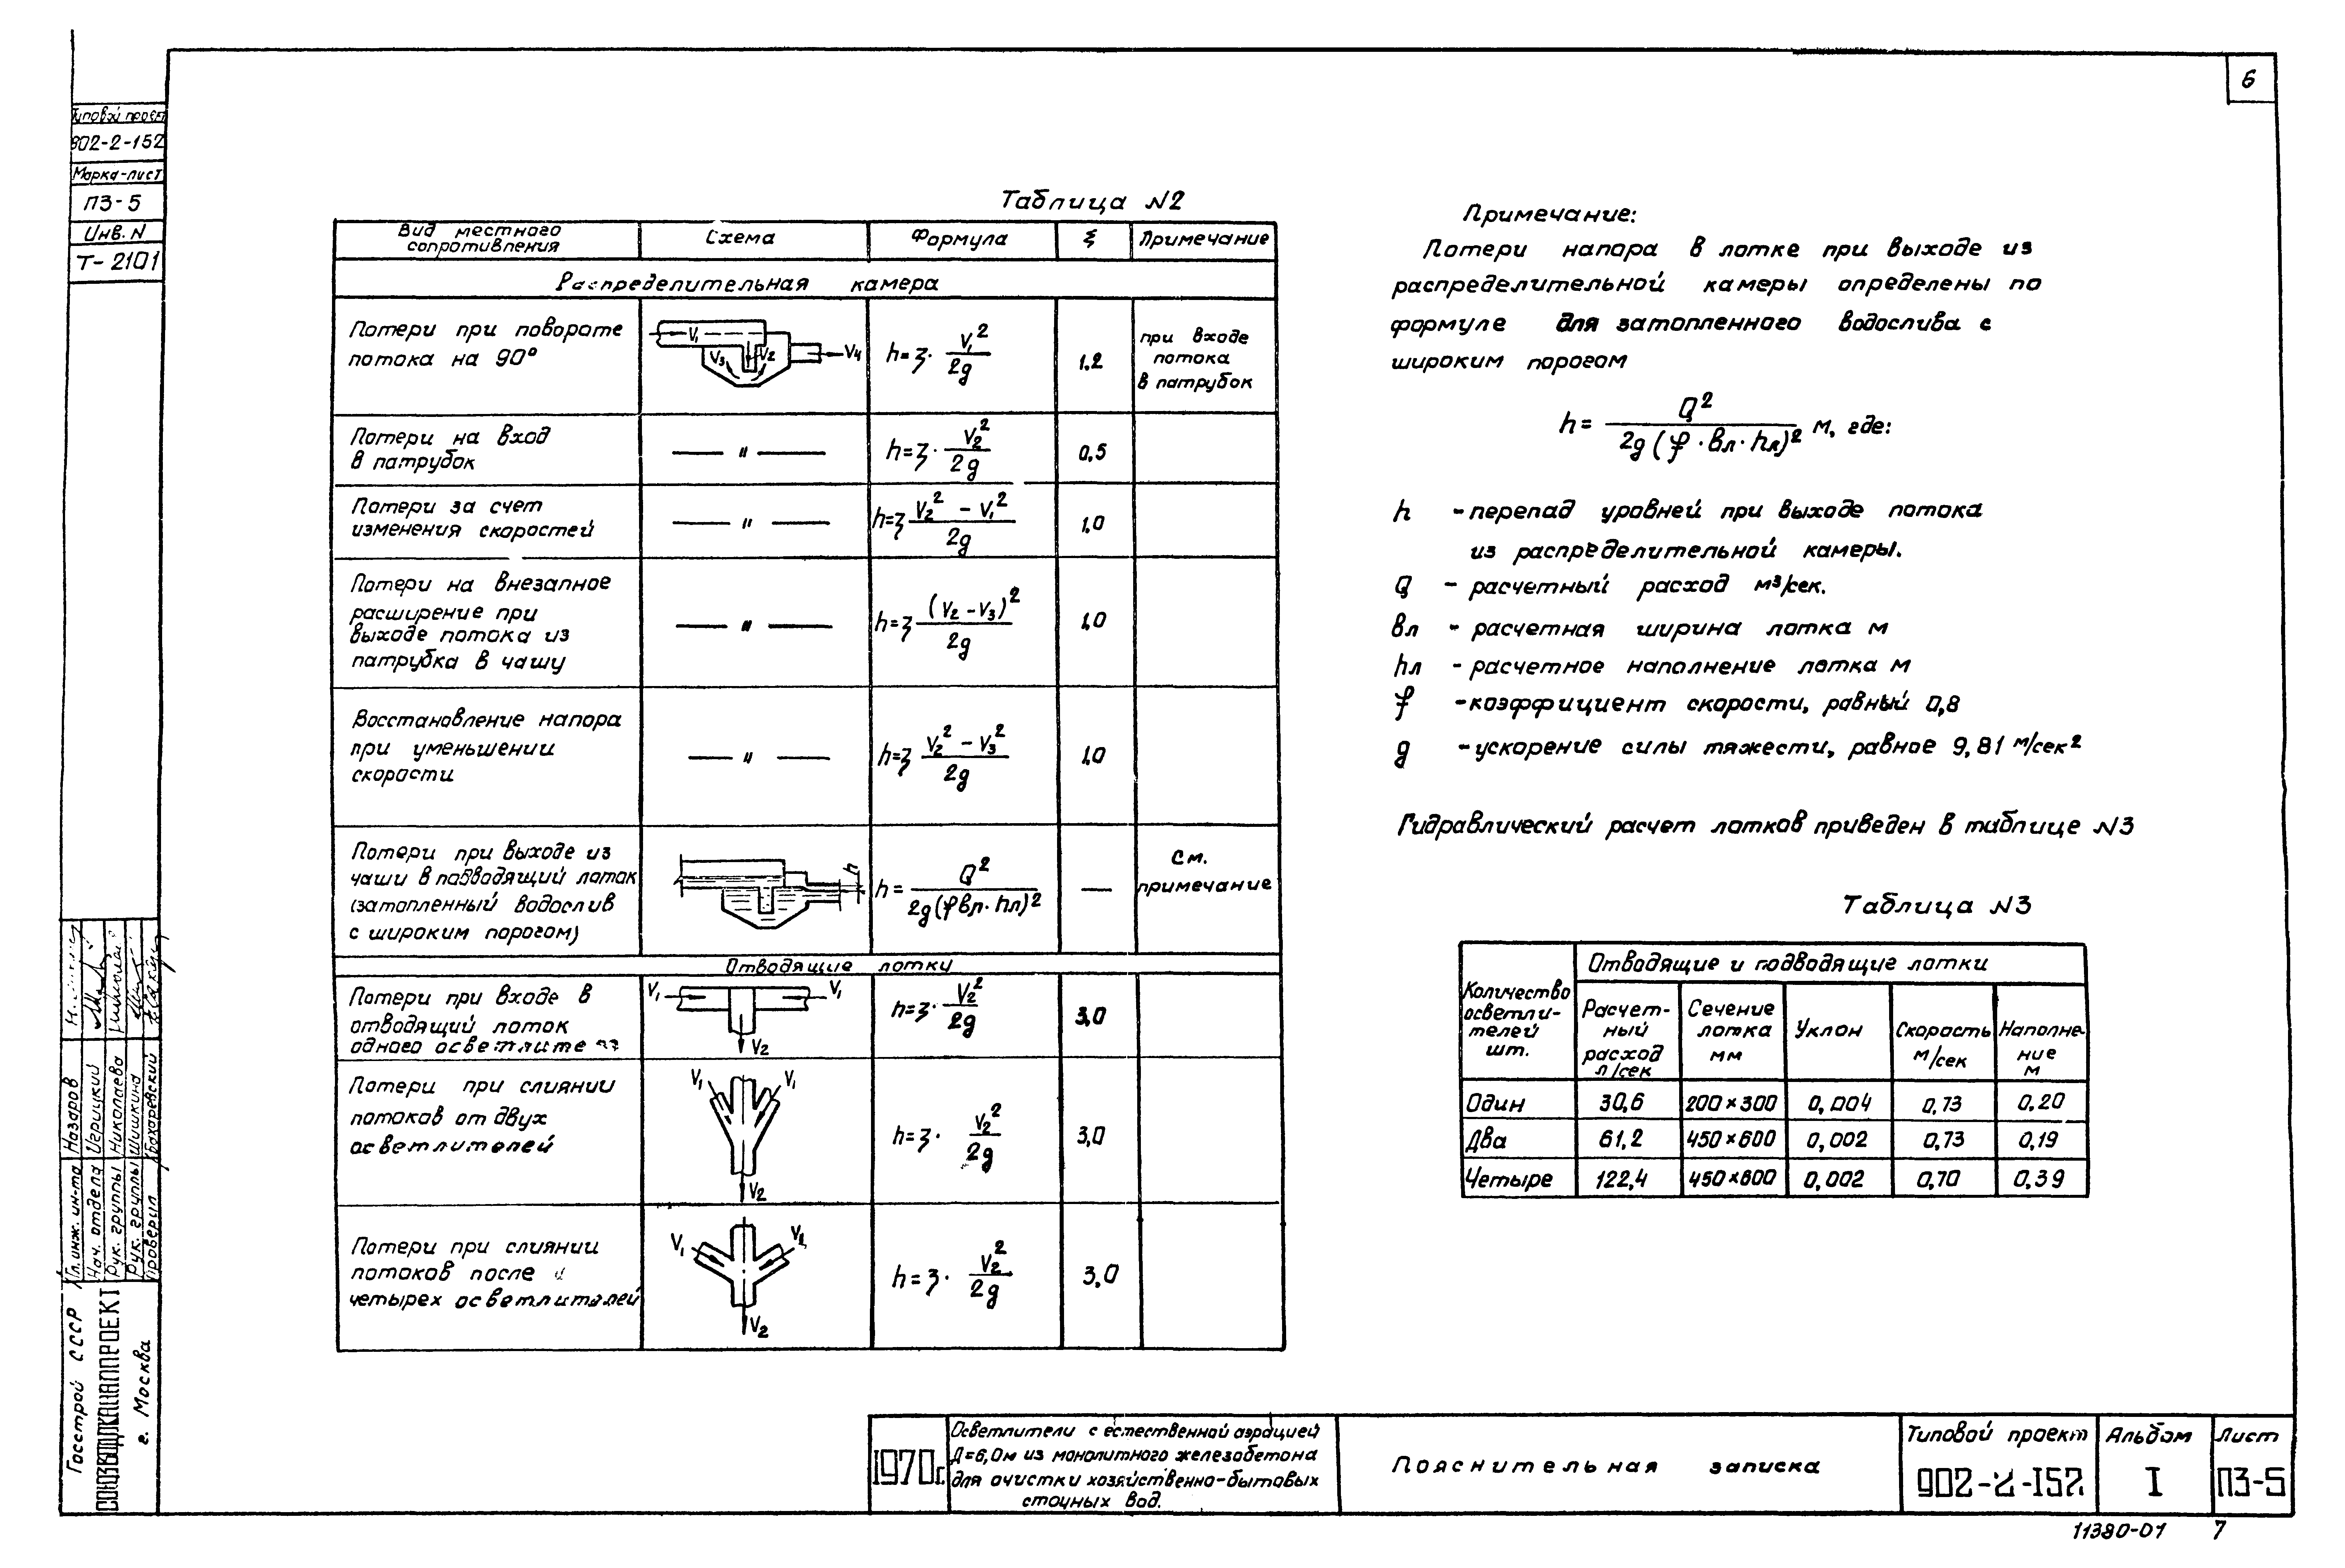 6
Типовой проект
902-2-152
Марка-лист
ПЗ-5
Инв. N
Т-2101
Таблица N2
Вид местного сопротивления	Схема	Формула	ξ	Примечание
Распределительная камера
Потери при повороте
потока на 90°
V₁ V₂ V₃ V₄
h=ξ· V₁²/2g
1.2
при входе
потока
в патрубок
Потери на вход
в патрубок
— " —
h=ξ· V₂²/2g
0,5
Потери за счет
изменения скоростей
— " —
h=ξ (V₂² – V₁²)/2g
1,0
Потери на внезапное
расширение при
выходе потока из
патрубка в чашу
— " —
h=ξ (V₂ – V₃)²/2g
1,0
Восстановление напора
при уменьшении
скорости
— " —
h=ξ (V₂² – V₃²)/2g
1,0
Потери при выходе из
чаши в подводящий лоток
(затопленный водослив
с широким порогом)
h
h= Q²/2g(φвл·hл)²
—
См.
примечание
Отводящие лотки
Потери при входе в
отводящий лоток
одного
V₁ V₁ V₂
h=ξ· V₂²/2g
3,0
Потери при слиянии
потоков от двух
осветлителей
V₁ V₁ V₂
h=ξ· V₂²/2g
3,0
Потери при слиянии
потоков после
четырех осветлителей
V₁ V₂
h=ξ· V₂²/2g
3,0
Примечание:
Потери напора в лотке при выходе из
распределительной камеры определены по
формуле для затопленного водослива с
широким порогом
h= Q²/2g(φ·вл·hл)² м, где:
h - перепад уровней при выходе потока
из распределительной камеры.
Q - расчетный расход м³/сек.
вл - расчетная ширина лотка м
hл - расчетное наполнение лотка м
φ - коэффициент скорости, равный 0,8
g - ускорение силы тяжести, равное 9,81 м/сек²
Гидравлический расчет лотков приведен в таблице N3
Таблица N3
Количество осветлителей шт.	Отводящие и подводящие лотки
Расчетный расход л/сек	Сечение лотка мм	Уклон	Скорость м/сек	Наполнение м
Один	30,6	200×300	0,004	0,73	0,20
Два	61,2	450×600	0,002	0,73	0,19
Четыре	122,4	450×600	0,002	0,70	0,39
Гл. инж. ин-та Назаров
Нач. отдела Игрицкий
Рук. группы Николаева
Рук. группы Шишкина
Проверил
Госстрой СССР
СОЮЗВОДОКАНАЛПРОЕКТ
г. Москва
1970г.
Осветлители с естественной аэрацией
Д=6,0м из монолитного железобетона
для очистки хозяйственно-бытовых
сточных вод.
Пояснительная записка
Типовой проект
902-2-152
Альбом
I
Лист
ПЗ-5
11380-01 7